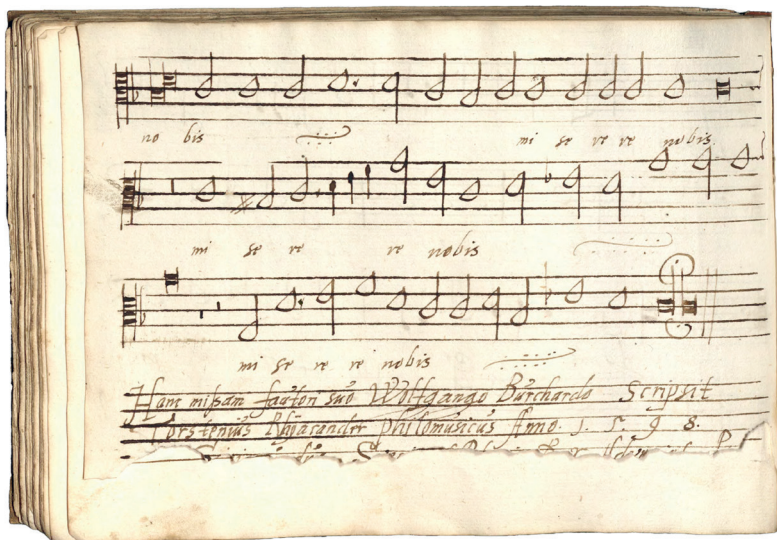 no bis mi se re re nobis
mi se re re nobis
mi se re re nobis
Hanc missam fautori suo Wolfgango Burchardo Scripsit
Torstenius Rhyacander philomusicus Anno. 1. 5. 9 8.